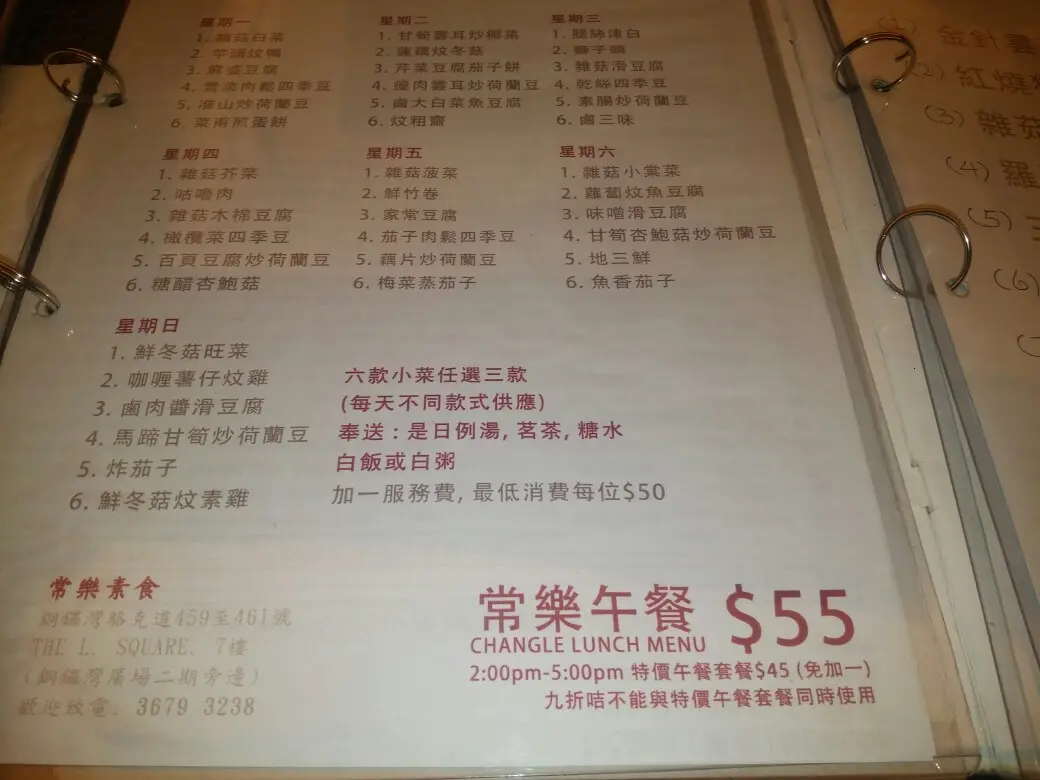 星期一
1. 雜菇白菜
2. 芋頭炆鴨
3. 麻婆豆腐
4. 雪菜肉鬆四季豆
5. 准山炒荷蘭豆
6. 菜甫煎蛋餅
星期二
1. 甘筍雲耳炒椰菜
2. 蓮藕炆冬菇
3. 芹菜豆腐茄子餅
4. 瘦肉雲耳炒荷蘭豆
5. 鹵大白菜魚豆腐
6. 炆粗齋
星期三
1. 腿絲津白
2. 獅子頭
3. 雜菇滑豆腐
4. 乾絲四季豆
5. 素腸炒荷蘭豆
6. 鹵三味
星期四
1. 雜菇芥菜
2. 咕嚕肉
3. 雜菇木棉豆腐
4. 橄欖菜四季豆
5. 百頁豆腐炒荷蘭豆
6. 糖醋杏鮑菇
星期五
1. 雜菇菠菜
2. 鮮竹卷
3. 家常豆腐
4. 茄子肉鬆四季豆
5. 藕片炒荷蘭豆
6. 梅菜蒸茄子
星期六
1. 雜菇小棠菜
2. 蘿蔔炆魚豆腐
3. 味噌滑豆腐
4. 甘筍杏鮑菇炒荷蘭豆
5. 地三鮮
6. 魚香茄子
星期日
1. 鮮冬菇旺菜
2. 咖喱薯仔炆雞
3. 鹵肉醬滑豆腐
4. 馬蹄甘筍炒荷蘭豆
5. 炸茄子
6. 鮮冬菇炆素雞
六款小菜任選三款
(每天不同款式供應)
奉送：是日例湯, 茗茶, 糖水
白飯或白粥
加一服務費, 最低消費每位$50
常樂素食
銅鑼灣駱克道459至461號
THE L. SQUARE. 7樓
(銅鑼灣廣場二期旁邊)
歡迎致電: 3679 3238
常樂午餐 $55
CHANGLE LUNCH MENU
2:00pm-5:00pm 特價午餐套餐$45 (免加一)
九折咭不能與特價午餐套餐同時使用
(1) 金針雲
(2) 紅燒
(3) 雜菇
(4) 羅
(5)
(6)